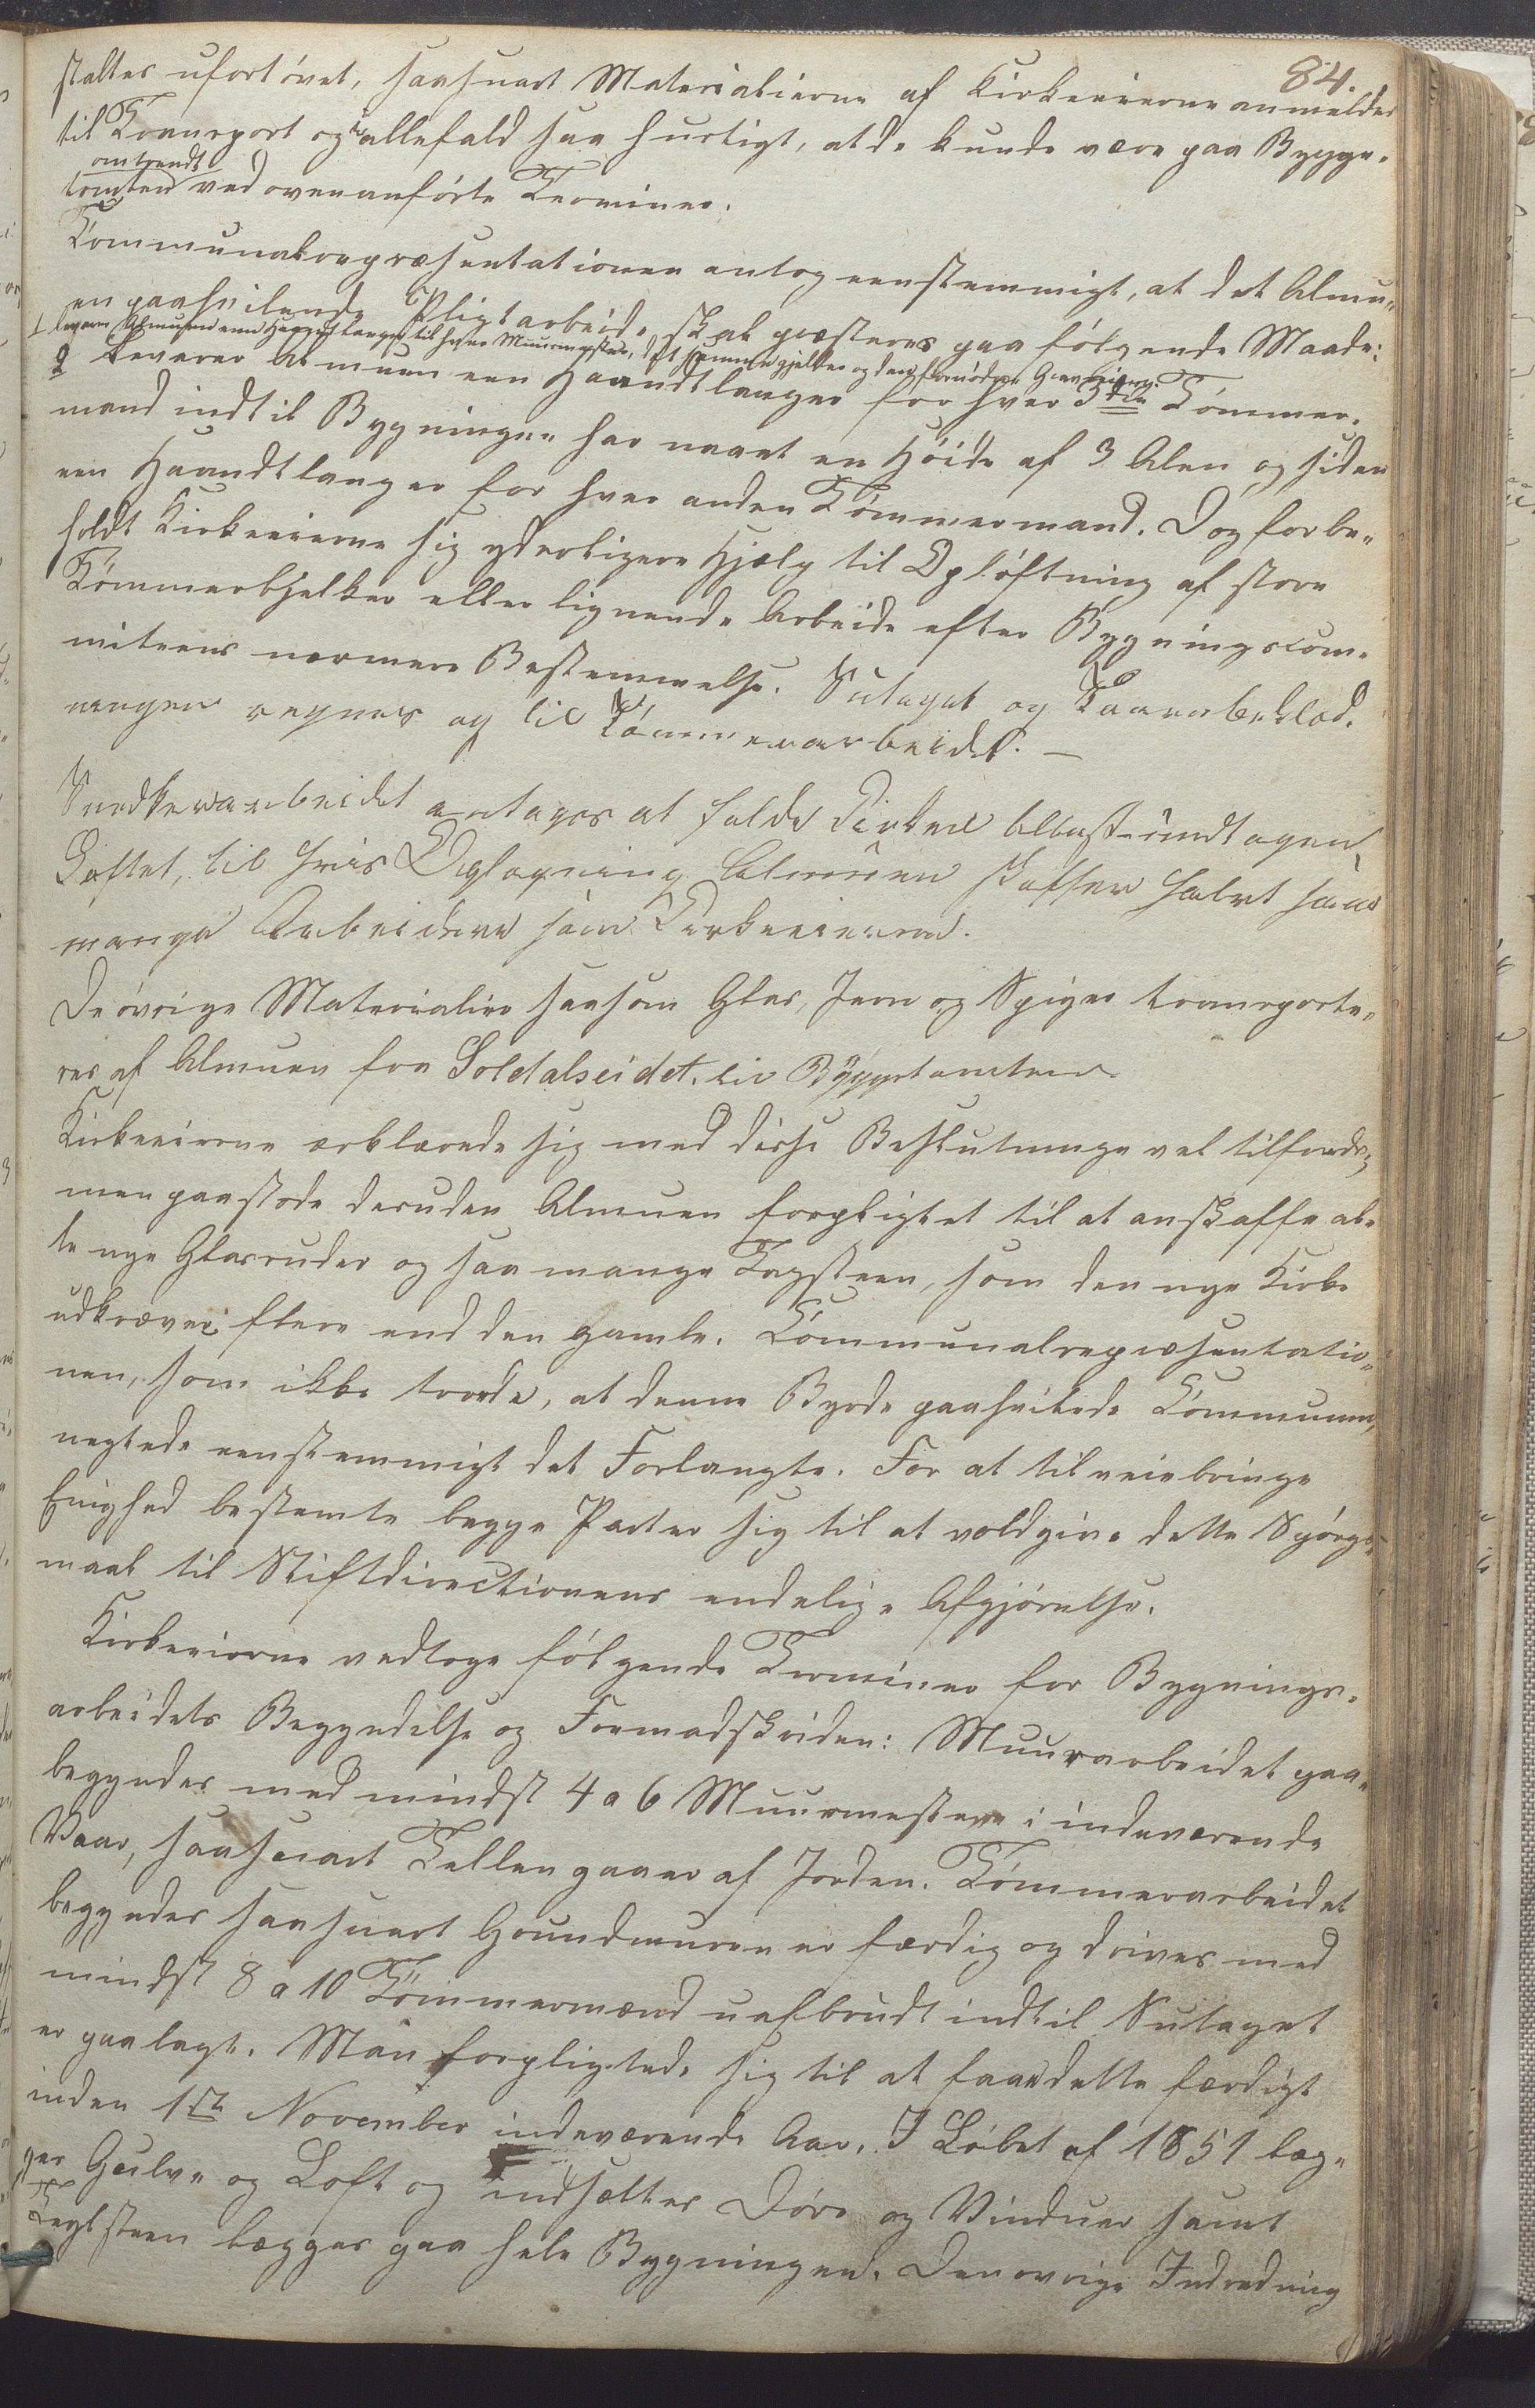 84.
staltes ufortövet, saasnart Materialierne af Kirkeeierne anmeldes
til Transport og i allefald saa hurtigt, at de kunde være paa Bygge-
omtrendt
tomten ved ovenanförte Terminer.
Communalrepræsentationen antog eenstemmigt, at det Almu-
en paahvilende Pligtarbeide skal præsteres paa fölgende Maade:
1 leverer Almuen een Haandtlanger til hver Muurmester, det samme gjelder og den fornödne Gravning.
2 Leverer Almuen een Haandtlanger for hver 3die Tömmer-
mand indtil Bygningen har naaet en Höide af 3 Alen og siden
een Haandtlanger for hver anden Tömmermand. Dog forbe-
holdt Kirkeeierne sig yderligere Hjælp til Oplöftning af store
Tömmerbjelker eller lignende Arbeide efter Bygningscom-
miteens nærmere Bestemmelse. Sutaget og Taarnbeklæd-
ningen regnes og til Tömmerarbeidet. —
Snedkerarbeidet antages at falde Kirken Alene undtagen
Loftet, til hvis Oplægning Almuen skaffer halvt saa
mange Arbeidere som Kirkeeierne.
De övrige Materialier saasom Glas, Jern og Spiger transporte-
res af Almuen fra Soldalseidet til Byggetomten.
Kirkeeierne erklærede sig med disse Beslutninger vel tilfreds;
men paastode desuden Almuen forpligtet til at anskaffe al-
le nye Glasruder og saa mange Tagsteen, som den nye Kirke
udkræver flere end den gamle. Communalrepræsentatio-
nen, som ikke troede, at denne Byrde paahvilede Communen,
negtede eenstemmigt det Forlangte. For at tilveiebringe
Enighed bestemte begge Parter sig til at voldgive dette Spörgs-
maal til Stiftdirectionens endelige Afgjörelse.
Kirkeeierne vedtoge fölgende Terminer for Bygnings-
arbeidets Begyndelse og Fremadskriden: Muurarbeidet paa-
begyndes med mindst 4 a 6 Muurmestere i indeværende
Vaar, saasnart Tællen gaaer af Jorden. Tömmerarbeidet
begyndes saasnart Grundmuren er færdig og drives med
mindst 8 a 10 Tömmermænd uafbrudt indtil Sutaget
er paalagt. Man forpligtede sig til at faae dette færdigt
inden 1ste November indeværende Aar. I Löbet af 1851 læg-
ges Gulve og Loft og indsættes Döre og Vinduer samt
Teglsteen lægges paa hele Bygningen. Den övrige Indredning